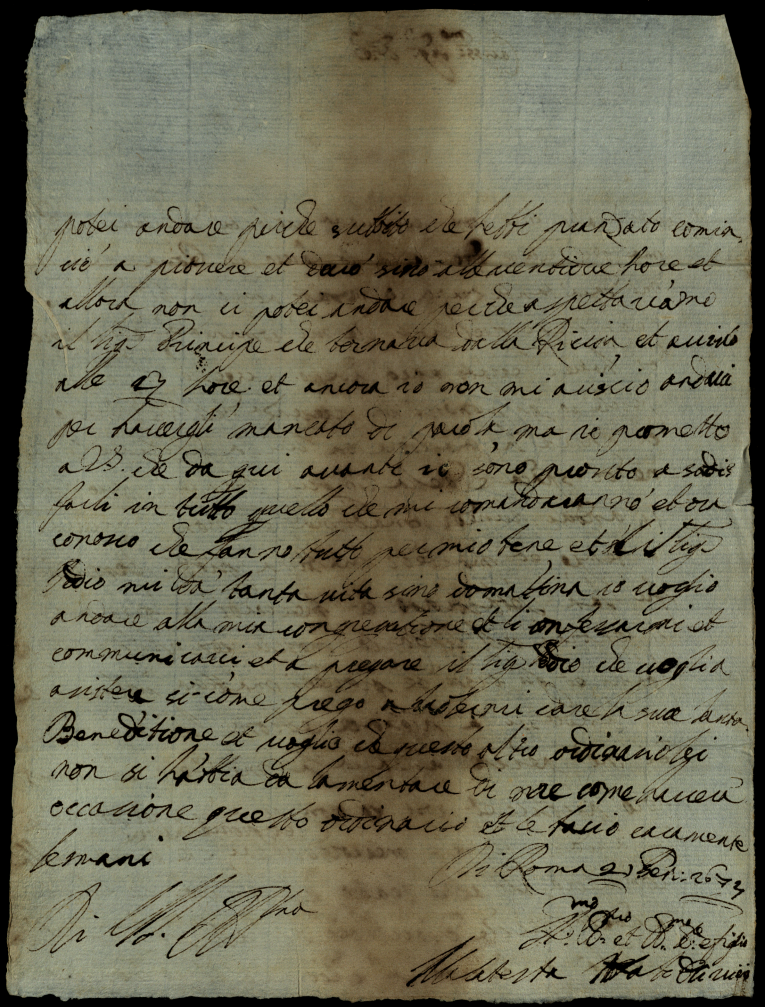 potei andare perche subbito che hebbi pranzato comin
ciò a piovere et durò sino alle ventidue hore et
allora non ci potei andare perche aspettavamo
il Sig. Principe che tornava dalla Riccia et arrivò
alle 23 hore et ancora io non mi
per havergli mancato di parola ma vi prometto
a V.S. che da qui avanti io sono pronto a sodis
farli in tutto quello che mi comandaranno et ora
conosco che fanno tutto per mio bene et il Sig.
Idio mi dà tanta vita sino domattina io voglio
andare alla mia congregatione et confessarmi et
communicarmi et a pregare il Sig. Idio che voglia
asistere si come prego la sua santa
Beneditione et voglio che quest altro ordinario lei
non si habbia da lamentare di me come haverà
occasione questo ordinario et le bacio caramente
le mani
Di Roma
Di V.S.
et
Malatesta